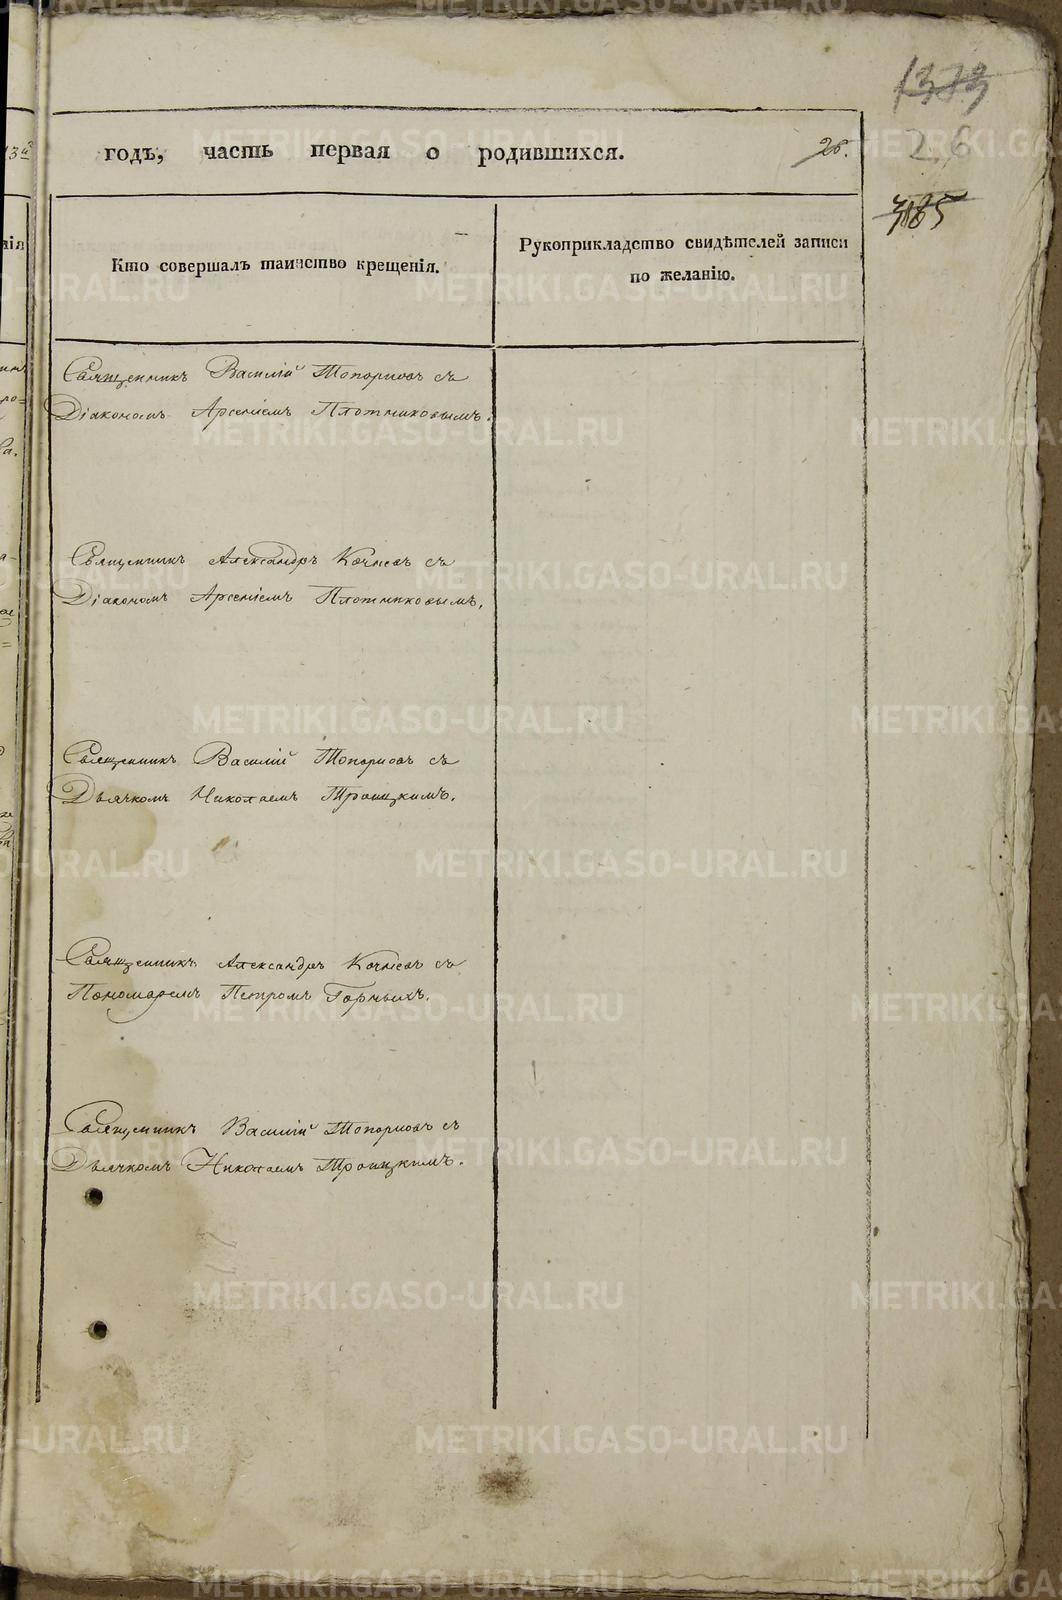 1373
годъ, часть первая о родившихся.
26.
26
3165
Кто совершалъ таинство крещенія.
Рукоприкладство свидѣтелей записи
по желанію.
Священникъ Василій Топорковъ съ
Діакономъ Арсеніемъ Плотниковымъ.
Священникъ Александръ Кочневъ съ
Діакономъ Арсеніемъ Плотниковымъ.
Священникъ Василій Топорковъ съ
Дьячкомъ Николаемъ Троицкимъ.
Священникъ Александръ Кочневъ съ
Пономаремъ Петромъ Горныхъ.
Священникъ Василій Топорковъ съ
Дьячкомъ Николаемъ Троицкимъ.
METRIKI.GASO-URAL.RU